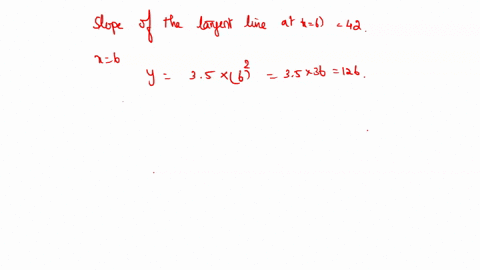 Slope of the largest line at x=6) = 42.
x=6
y = 3.5 × (6)² = 3.5 × 36 = 126.